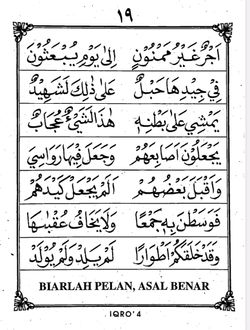 ١٩
اَجْرٌ غَيْرُ مَمْنُوْنٍ اِلٰى يَوْمِ يُبْعَثُوْنَ
فِيْ جِيْدِهَا حَبْلٌ عَلٰى ذٰلِكَ لَشَهِيْدٌ
يَمْشِيْ عَلٰى بَطْنِهٖ هٰذَا لَشَيْءٌ عُجَابٌ
يَجْعَلُوْنَ اَصَابِعَهُمْ وَجَعَلَ فِيْهَا رَوَاسِيَ
وَاَقْبَلَ بَعْضُهُمْ اَلَمْ يَجْعَلْ كَيْدَهُمْ
فَوَسَطْنَ بِهٖ جَمْعًا وَلَا يَخَافُ عُقْبٰهَا
وَقَدْ خَلَقَكُمْ اَطْوَارًا لَمْ يَلِدْ وَلَمْ يُوْلَدْ
BIARLAH PELAN, ASAL BENAR
IQRO' 4